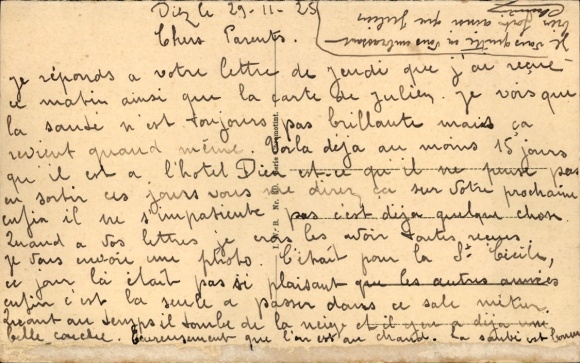 Diez le 29-11-25
Chers Parents.
je réponds a votre lettre de jeudi que j'ai reçue
ce matin ainsi que la carte de Julien. je vois que
la santé n'est toujours pas brillante mais ça
revient quand même. Voila déja au moins 15 jours
qu'il est a l'hotel Dieu est-ce qu'il ne peuse pas
en sortir ces jours vous me direz ça sur votre prochaine
enfin il ne s'impatiente pas c'est déja quelque chose.
Quand a vos lettres je crois les avoir toutes reçues
je vous envoie une photo. C'était pour la Ste Cécile,
ce jour là était pas si plaisant que les autres années
enfin c'est la seule a passer dans ce sale métier.
Quant au temps il tombe de la neige et il y en a déja une
belle couche. Heureusement que l'on est au chaud. La santé est bonne
Je vous quitte en vous embrassant
bien fort ainsi que Julien